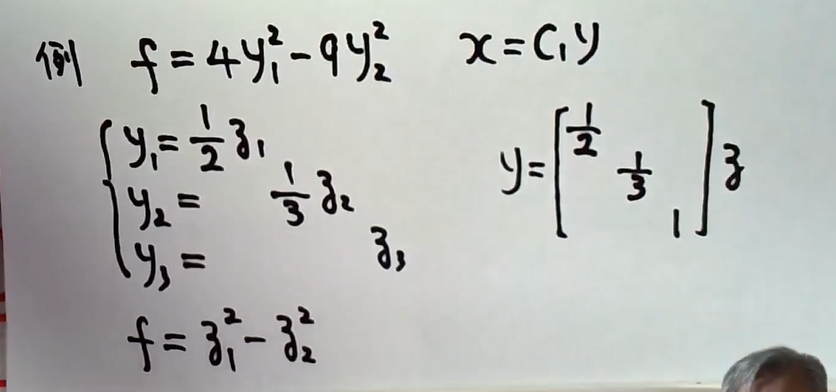 例 f = 4y₁² - 9y₂² x = C₁y
y₁ = 1/2 z₁
y₂ = 1/3 z₂
y₃ = z₃
y = [1/2 1/3 1] z
f = z₁² - z₂²